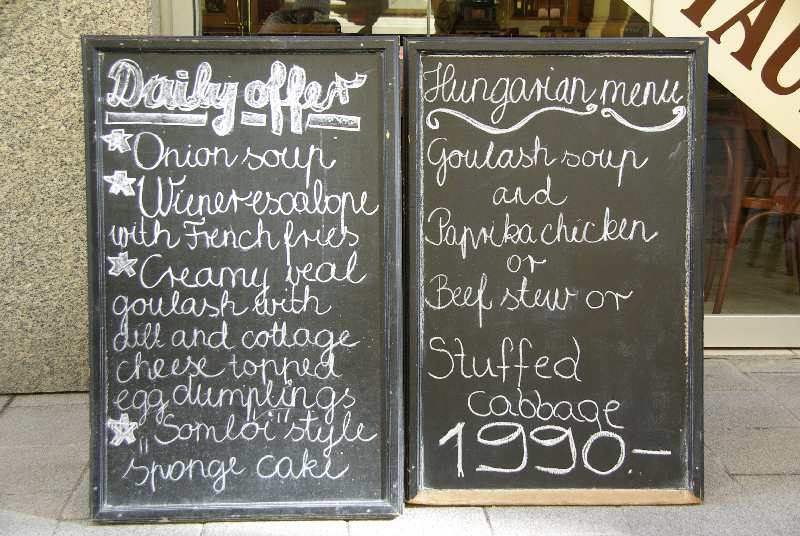 Daily offer
Onion soup
Wiener escalope
with French fries
Creamy veal
goulash with
dill and cottage
cheese topped
egg dumplings
„Somlói" style
sponge cake
Hungarian menu
Goulash soup
and
Paprika chicken
or
Beef stew or
Stuffed
cabbage
1990.-